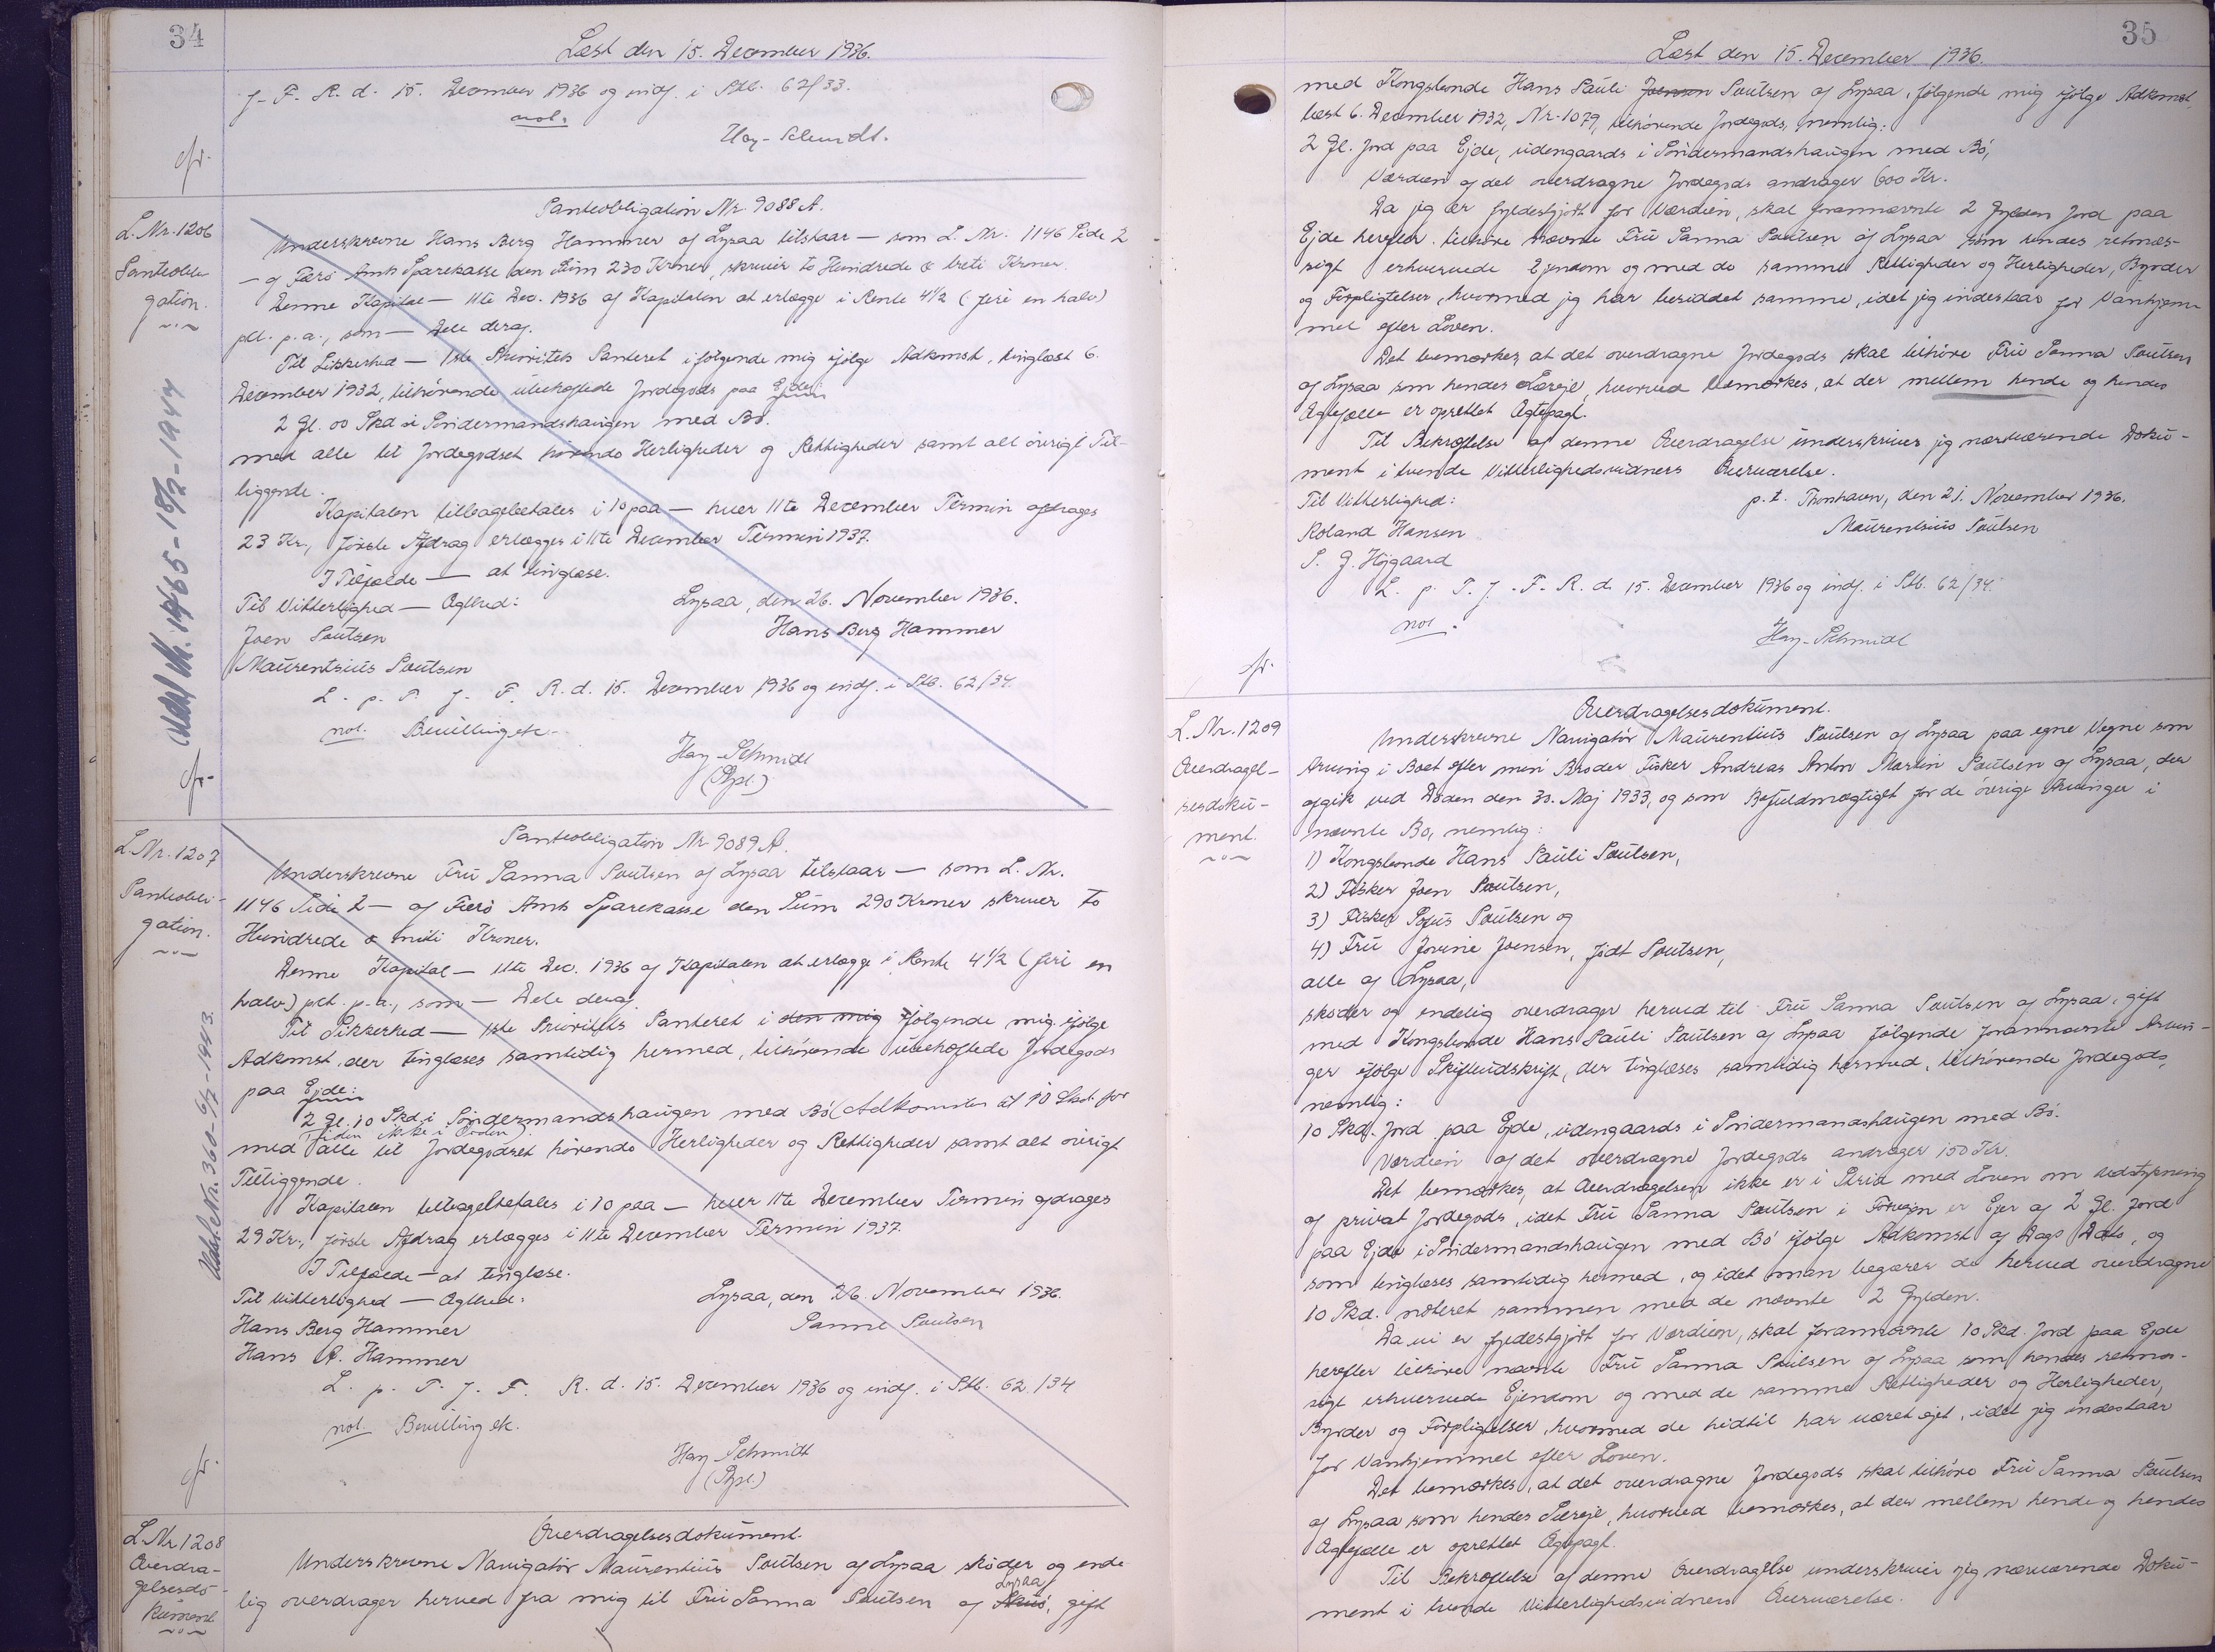 34
Læst den 15. December 1936.
J. F. R. d. 15. December 1936 og indf. i Ptb. 62/33.
not.
Hay-Schmidt.
cfr.
L. Nr. 1206
Panteobli-
gation.
Panteobligation Nr. 9088 A.
Underskrevne Hans Berg Hammer af Lysaa tilstaar — som L. Nr. 1146 Side 2
— af Færø Amts Sparekasse den Sum 230 Kroner, skriver to Hundrede & treti Kroner.
Denne Kapital — 11te Dec. 1936 af Kapitalen at erlægge i Rente 4 1/2 (fire en halv)
pct. p.a., som — Dele deraf.
Til Sikkerhed — 1ste Prioritets Panteret i følgende mig ifølge Adkomst, tinglæst 6.
December 1932, tilhørende ubehæftede Jordegods paa Ejde:
2 Gl. 00 Skd i Sindermandshaugen med Bø.
med alle til Jordegodset hørende Herligheder og Rettigheder samt alt øvrigt Til-
liggende.
Kapitalen tilbagebetales i 10 paa — hver 11te December Termin afdrages
23 Kr., første Afdrag erlægges i 11te December Termin 1937.
I Tilfælde — at tinglæse.
Til Vitterlighed — Ægthed:
Lysaa, den 26. November 1936.
Joen Poulsen
Hans Berg Hammer
Maurentsius Poulsen
L. p. T. J. F. R. d. 15. December 1936 og indf. i Ptb. 62/34.
not. Bevilling ek.
Hay-Schmidt
(Spl.)
cfr.
Udsl. Nr. 1465-18/2-1944
L. Nr. 1207
Panteobli-
gation.
Panteobligation Nr. 9089 A.
Underskrevne Fru Sanna Poulsen af Lysaa tilstaar — som L. Nr.
1146 Side 2 — af Færø Amts Sparekasse den Sum 290 Kroner skriver to
Hundrede & niti Kroner.
Denne Kapital — 11te Dec. 1936 af Kapitalen at erlægge i Rente 4 1/2 (fire en
halv) pct. p.a., som — Dele deraf.
Til Sikkerhed — 1ste Prioritets Panteret i den mig følgende mig ifølge
Adkomst, der tinglæses samtidig hermed, tilhørende ubehæftede Jordegods
paa Ejde:
2 Gl. 10 Skd. i Sindermandshaugen med Bø (Adkomsten til 10 Skd. for
Tiden ikke i Orden).
med alle til Jordegodset hørende Herligheder og Rettigheder samt alt øvrigt
Tilliggende.
Kapitalen tilbagebetales i 10 paa — hver 11te December Termin afdrages
29 Kr., første Afdrag erlægges i 11te December Termin 1937.
I Tilfælde — at tinglæse.
Til Vitterlighed — Ægthed:
Lysaa, den 26. November 1936.
Hans Berg Hammer
Sanne Poulsen
Hans A. Hammer
L. p. T. J. F. R. d. 15. December 1936 og indf. i Ptb. 62/34
not. Bevilling ek.
Hay-Schmidt
(Spl.)
cfr.
Udsl. Nr. 360-6/7-1943.
L. Nr. 1208
Overdra-
gelsesdo-
kument
Overdragelsesdokument.
Underskrevne Navigatør Maurentius Poulsen af Lysaa skøder og ende
lig overdrager herved fra mig til Fru Sanna Poulsen af Lysaa, gift
35
Læst den 15. December 1936.
med Kongsbonde Hans Pauli Joensen Poulsen af Lysaa, følgende mig ifølge Adkomst,
læst 6. December 1932, Nr. 1079, tilhørende Jordegods, nemlig:
2 Gl. Jord paa Ejde, udengaards i Sindermandshaugen med Bø,
Værdien af det overdragne Jordegods andrager 600 Kr.
Da jeg er fyldestgjort for Værdien, skal forannævnte 2 Gylden Jord paa
Ejde herefter tilhøre nævnte Fru Sanna Poulsen af Lysaa som hendes retmæs-
sigt erhvervede Ejendom og med de samme Rettigheder og Herligheder, Byrder
og Forpligtelser, hvormed jeg har besiddet samme, idet jeg indestaar for Vanhjem-
mel efter Loven.
Det bemærkes, at det overdragne Jordegods skal tilhøre Fru Sanna Poulsen
af Lysaa som hendes Særeje, hvorved bemærkes, at der mellem hende og hendes
Ægtefælle er oprettet Ægtepagt.
Til Bekræftelse af denne Overdragelse underskriver jeg nærværende Doku-
ment i tvende Vitterlighedsvidners Overværelse.
Til Vitterlighed:
p.t. Thorshavn, den 21. November 1936.
Roland Hansen
Maurentsius Poulsen
S. J. Højgaard
L. p. T. J. F. R. d. 15. December 1936 og indf. i Ptb. 62/34.
not.
Hay-Schmidt
cfr.
L. Nr. 1209
Overdragel-
sesdoku-
ment.
Overdragelsesdokument.
Underskrevne Navigatør Maurentius Poulsen af Lysaa paa egne Vegne som
Arving i Boet efter min Broder Fisker Andreas Anton Martin Poulsen af Lysaa, der
afgik ved Døden den 30. Maj 1933, og som Befuldmægtiget for de øvrige Arvinger i
nævnte Bo, nemlig:
1) Kongsbonde Hans Pauli Poulsen,
2) Fisker Joen Poulsen,
3) Fisker Sofus Poulsen og
4) Fru Jovine Joensen, født Poulsen,
alle af Lysaa,
skøder og endelig overdrager herved til Fru Sanna Poulsen af Lysaa, gift
med Kongsbonde Hans Pauli Poulsen af Lysaa følgende forannævnte Arvin-
ger ifølge Skifteudskrift, der tinglæses samtidig hermed, tilhørende Jordegods,
nemlig:
10 Skd. Jord paa Ejde, udengaards i Sindermandshaugen med Bø.
Værdien af det overdragne Jordegods andrager 150 Kr.
Det bemærkes, at Overdragelsen ikke er i Strid med Loven om Udstykning
af privat Jordegods, idet Fru Sanna Poulsen i Forvejen er Ejer af 2 Gl. Jord
paa Ejde i Sindermandshaugen med Bø ifølge Adkomst af Dags Dato, og
som tinglæses samtidig hermed, og idet man begærer de herved overdragne
10 Skd. noteret sammen med de nævnte 2 Gylden.
Da vi er fyldestgjort for Værdien, skal forannævnte 10 Skd. Jord paa Ejde
herefter tilhøre nævnte Fru Sanna Poulsen af Lysaa som hendes retmæs-
sigt erhvervede Ejendom og med de samme Rettigheder og Herligheder,
Byrder og Forpligtelser, hvormed de hidtil har været ejet, idet jeg indestaar
for Vanhjemmel efter Loven.
Det bemærkes, at det overdragne Jordegods skal tilhøre Fru Sanna Poulsen
af Lysaa som hendes Særeje, hvorved bemærkes, at der mellem hende og hendes
Ægtefælle er oprettet Ægtepagt.
Til Bekræftelse af denne Overdragelse underskriver jeg nærværende Doku-
ment i tvende Vitterlighedsvidners Overværelse.